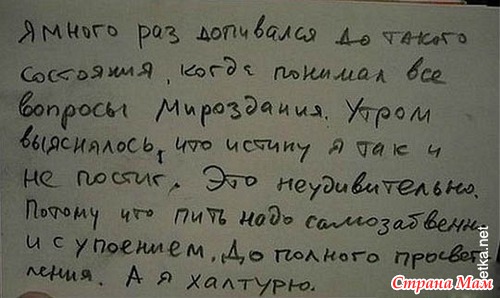 Я много раз допивался до такого
состояния, когда понимал все
вопросы Мироздания. Утром
выяснялось, что истину я так и
не постиг. Это неудивительно.
Потому что пить надо самозабвенн
и с упоением. До полного просвет
ления. А я халтурю.
etka.net
Страна Мам